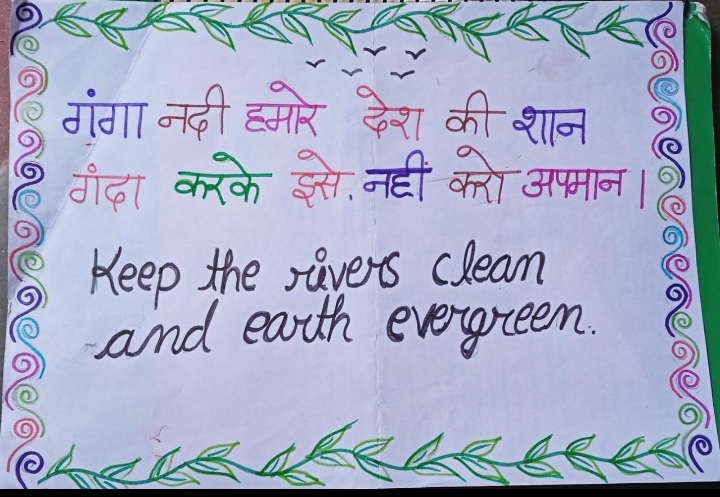 गंगा नदी हमारे देश की शान
गंदा करके इसे, नहीं करो अपमान।
Keep the rivers clean
and earth evergreen.